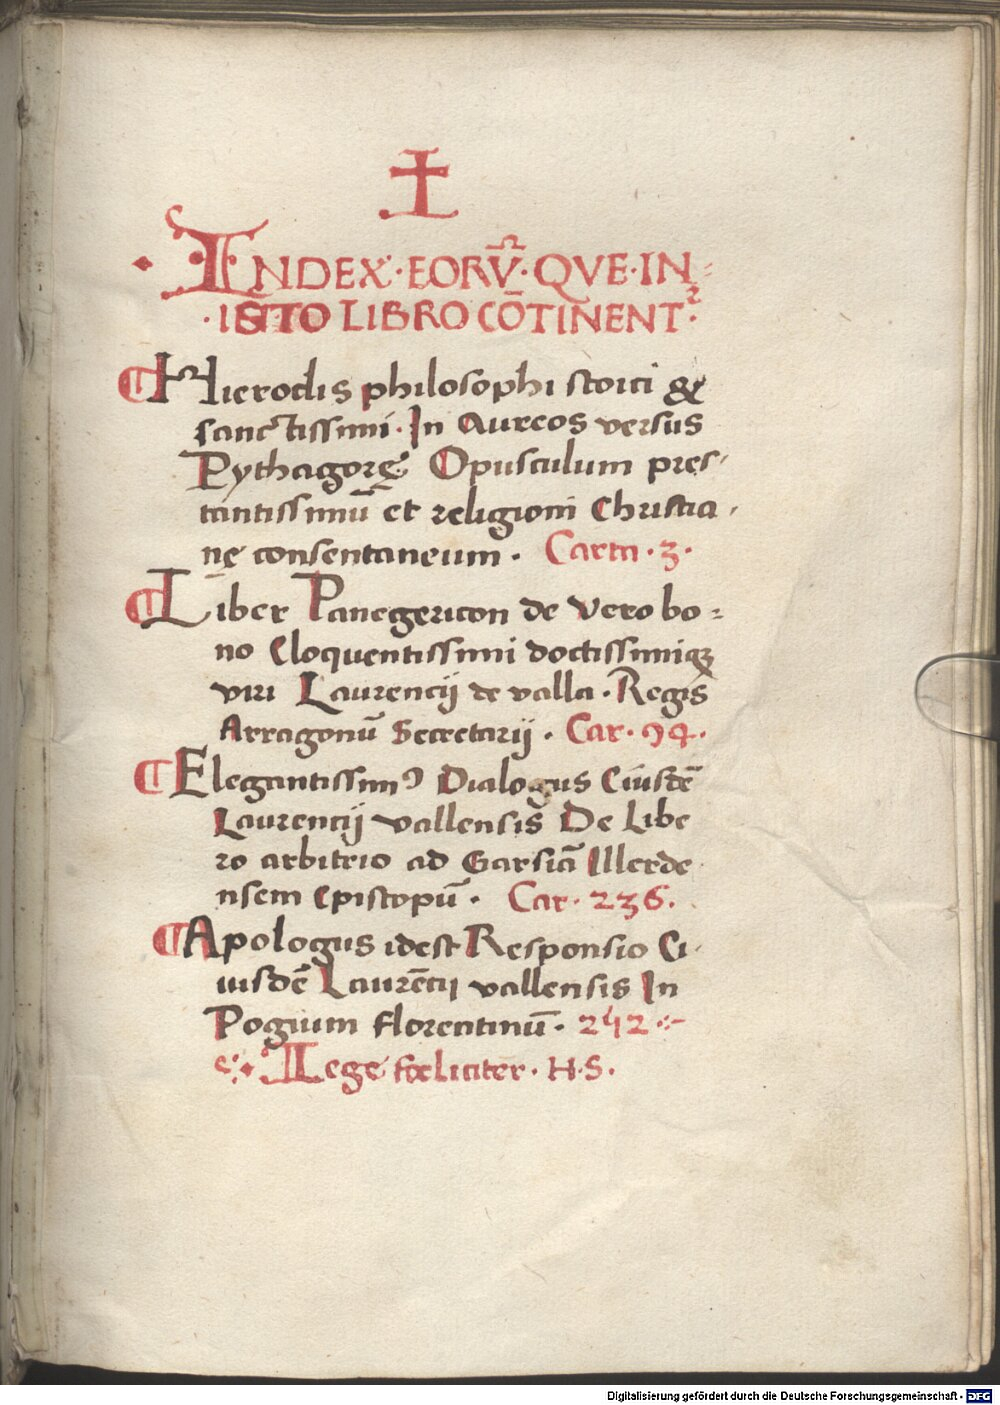 INDEX·EORV̄·QVE·IN⸗
·ISTO LIBRO CŌTINENT²·
¶Hieroclis philosophi stoici &
sanctissimi· In Aureos versus
Pythagorę Opusculum pres-
tantissimū et religioni Christia-
nę consentaneum· Carta·3·
¶Liber Panegericon de vero bo⸗
no Eloquentissimi doctissimiqꝫ
viri Laurencij de valla· Regis
Arragonū Secretarij· Car·94·
¶Elegantissimꝰ Dialogus Eiusdē
Laurencij vallensis De Libe
ro arbitrio ad Garsiā Illerde
nsem Episcopū· Car·236·
¶Apologus idest Responsio Ei-
iusdē Laurēcij vallensis In
Pogium florentinū· 242
Lege fœliciter· H·S·
Digitalisierung gefördert durch die Deutsche Forschungsgemeinschaft - DFG